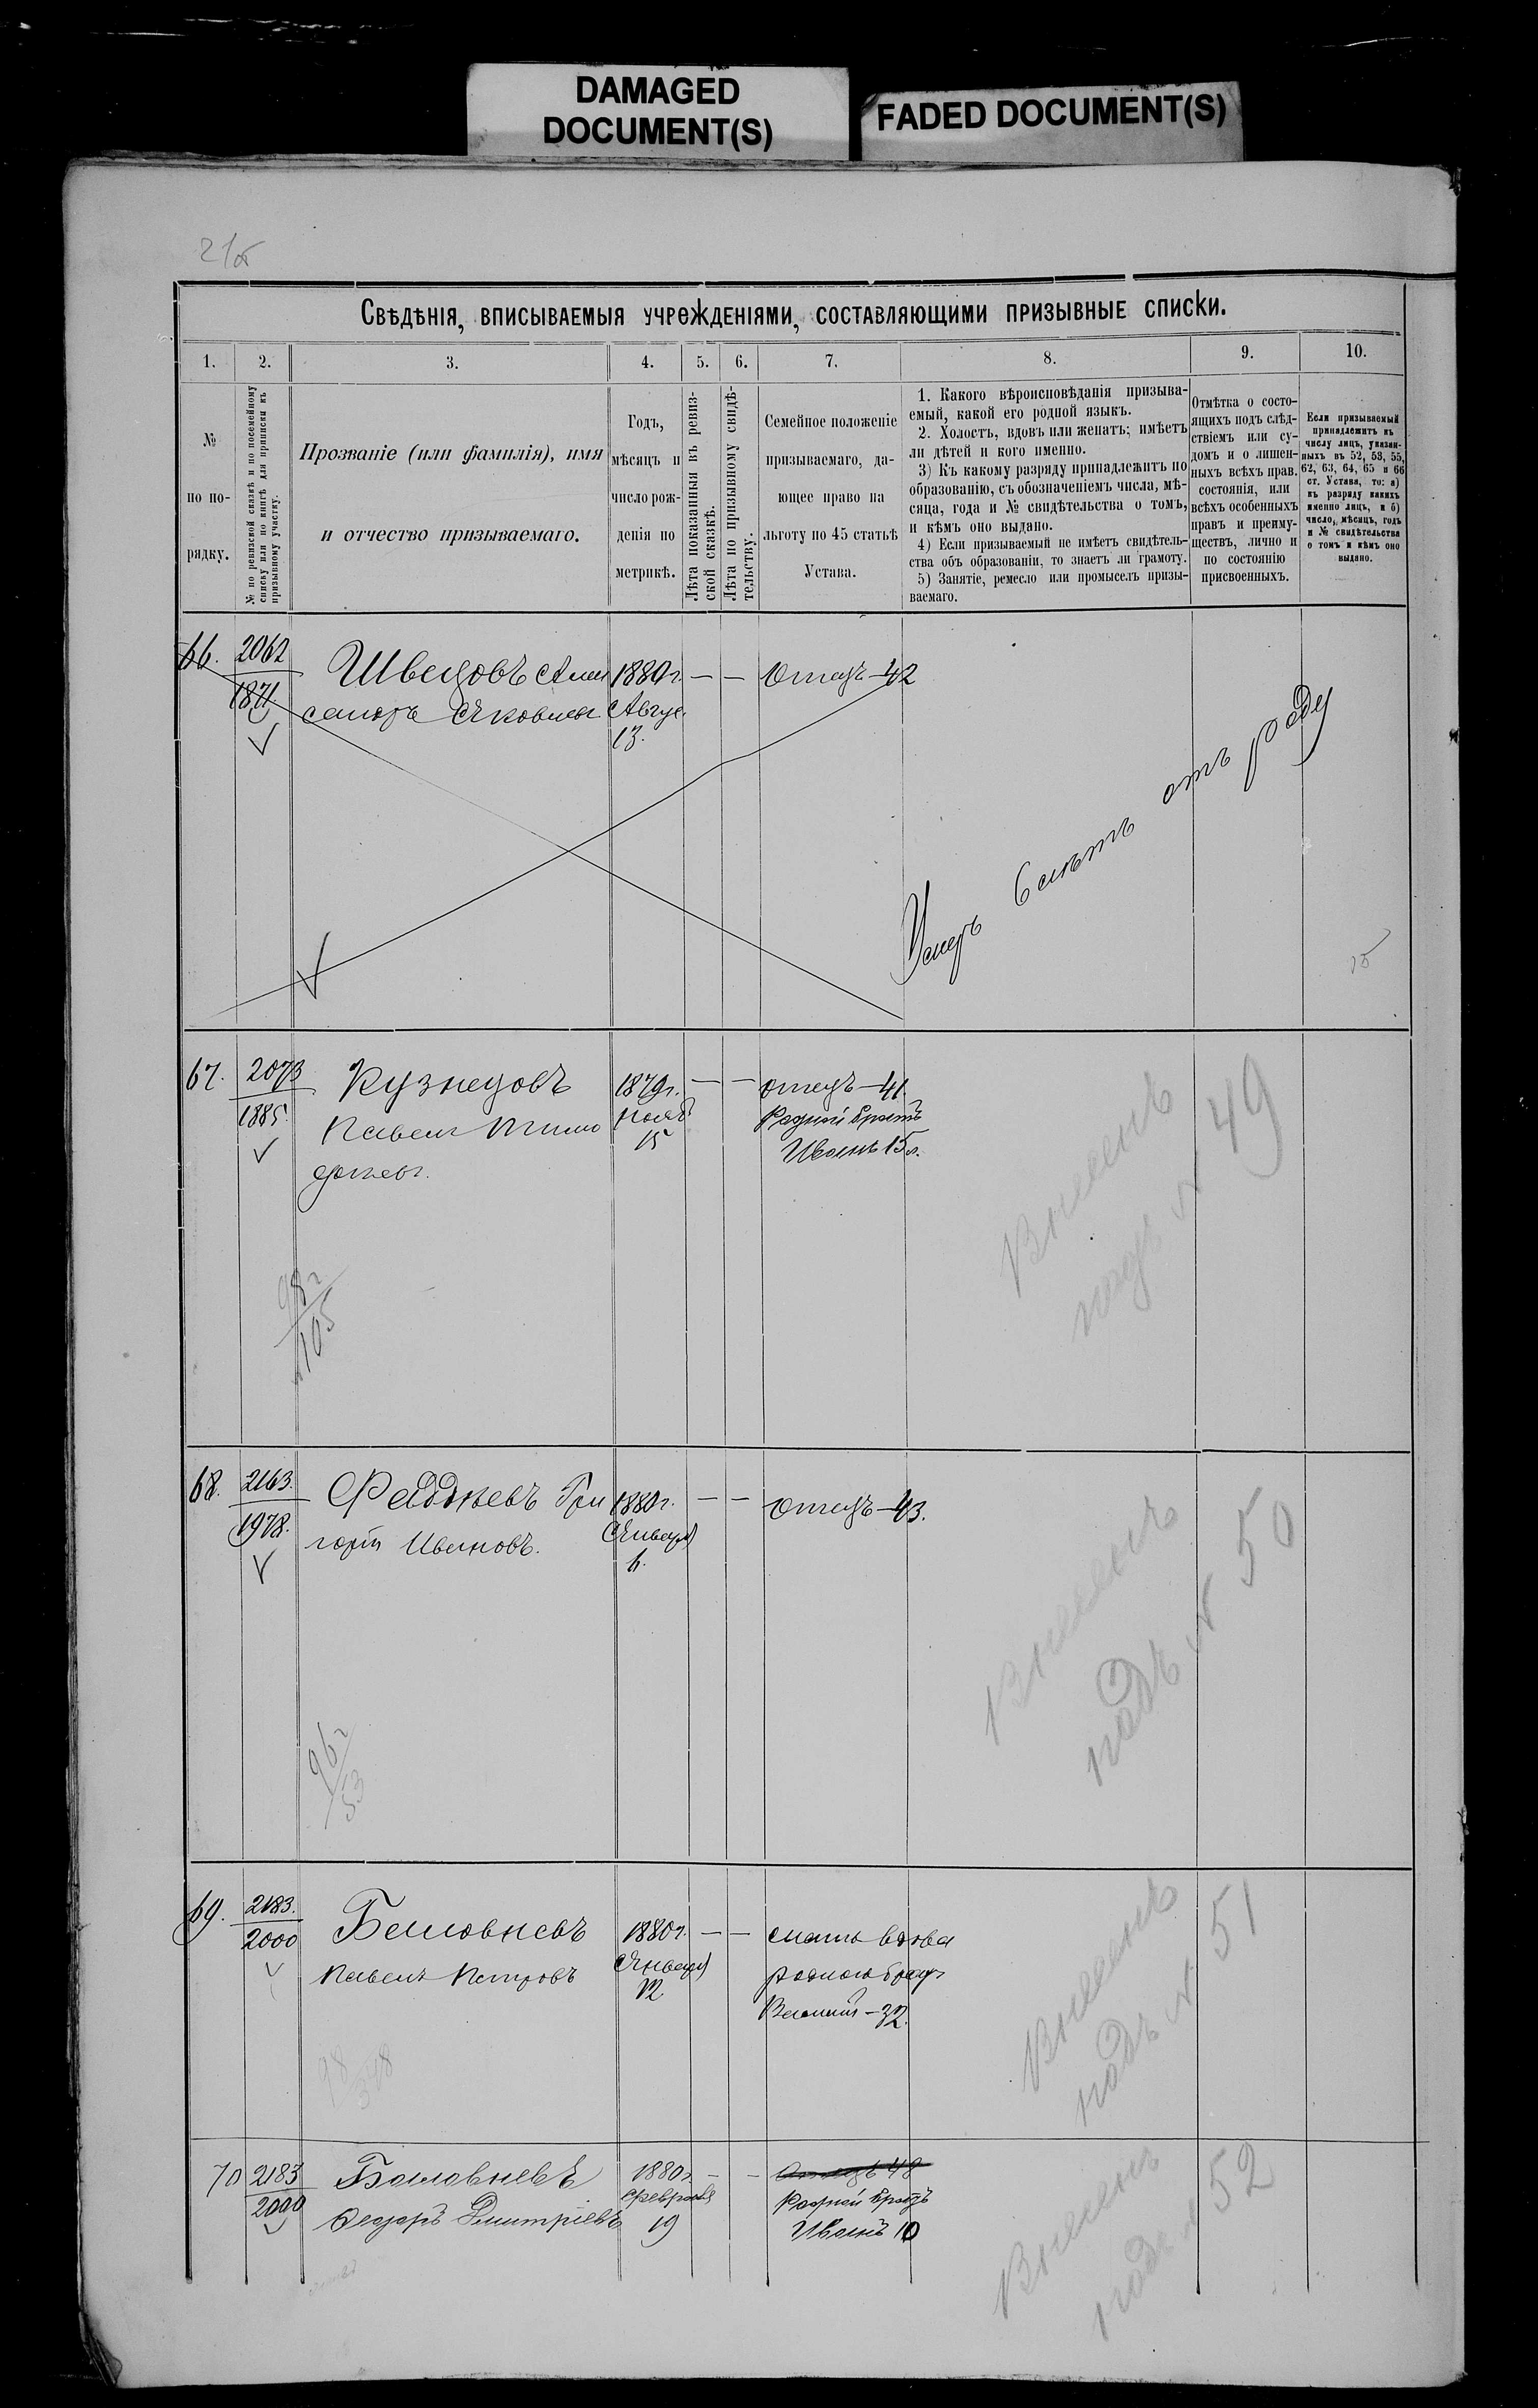 DAMAGED
DOCUMENT(S)
FADED DOCUMENT(S)
Свѣдѣнія, вписываемыя учрежденіями, составляющими призывные списки.
1.
2.
3.
4.
5.
6.
7.
8.
9.
10.
№
по по-
рядку.
№ по ревизской сказкѣ и по посемейному
списку или по книгѣ для приписки къ
призывному участку.
Прозваніе (или фамилія), имя
и отчество призываемаго.
Годъ,
мѣсяцъ и
число рож-
денія по
метрикѣ.
Лѣта показанныя въ ревиз-
ской сказкѣ.
Лѣта по призывному свидѣ-
тельству.
Семейное положеніе
призываемаго, да-
ющее право на
льготу по 45 статьѣ
Устава.
1. Какого вѣроисповѣданія призыва-
емый, какой его родной языкъ.
2. Холостъ, вдовъ или женатъ; имѣетъ
ли дѣтей и кого именно.
3) Къ какому разряду принадлежитъ по
образованію, съ обозначеніемъ числа, мѣ-
сяца, года и № свидѣтельства о томъ,
и кѣмъ оно выдано.
4) Если призываемый не имѣетъ свидѣтель-
ства объ образованіи, то знаетъ ли грамоту.
5) Занятіе, ремесло или промыселъ призы-
ваемаго.
Отмѣтка о состо-
ящихъ подъ слѣд-
ствіемъ или су-
домъ и о лишен-
ныхъ всѣхъ прав.
состоянія, или
всѣхъ особенныхъ
правъ и преиму-
ществъ, лично и
по состоянію
присвоенныхъ.
Если призываемый
принадлежитъ къ
числу лицъ, указан-
ныхъ въ 52, 53, 55,
62, 63, 64, 65 и 66
ст. Устава, то: а)
къ разряду какихъ
именно лицъ, и б)
число, мѣсяцъ, годъ
и № свидѣтельства
о томъ и кѣмъ оно
выдано.
66. 2062 Швецовъ Алек 1880г. — — Отецъ — 42
1871. сандръ Яковлевъ Авгус.
13.
Умеръ 6 лѣтъ отъ роду
15
67. 2073 Кузнецовъ 1879г. — — Отецъ — 41.
1885. Павелъ Тимо Нояб Родной братъ
15 Иванъ 15л.
Внесенъ
подъ № 49
98г
105
68. 2163. Фаддѣевъ Гри 1880г. — — Отецъ — 43.
1978. горій Ивановъ. Января
Внесенъ
подъ № 50
96г
53
69. 2183. Баловневъ 1880г. — — мать вдова
2000 Павелъ Петровъ Января родной братъ
12 Василій — 32.
Внесенъ
подъ № 51
98
348
70 2183 Баловневъ 1880г. — — Отецъ 48
2000 Федоръ Дмитріевъ Февраля Родной братъ
19 Иванъ 10
Внесенъ
подъ № 52